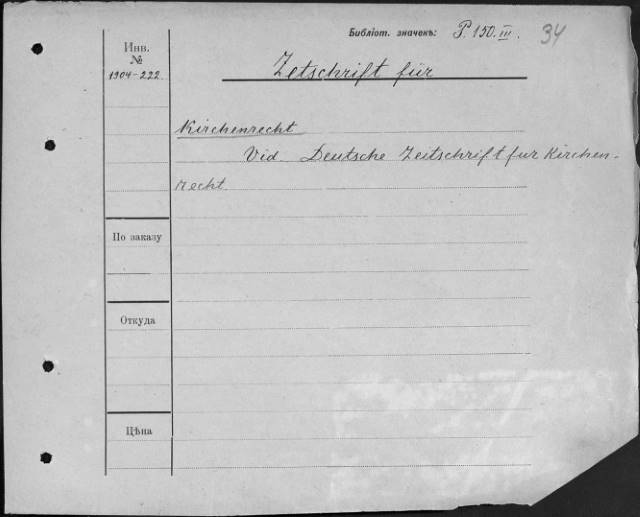 Библіот. значекъ: P. 150. III. 34
Инв.
№
1904-222
Zetschrift für
Kirchenrecht
Vid. Deutsche Zeitschrift fur Kirchen-
recht
По заказу
Откуда
Цѣна